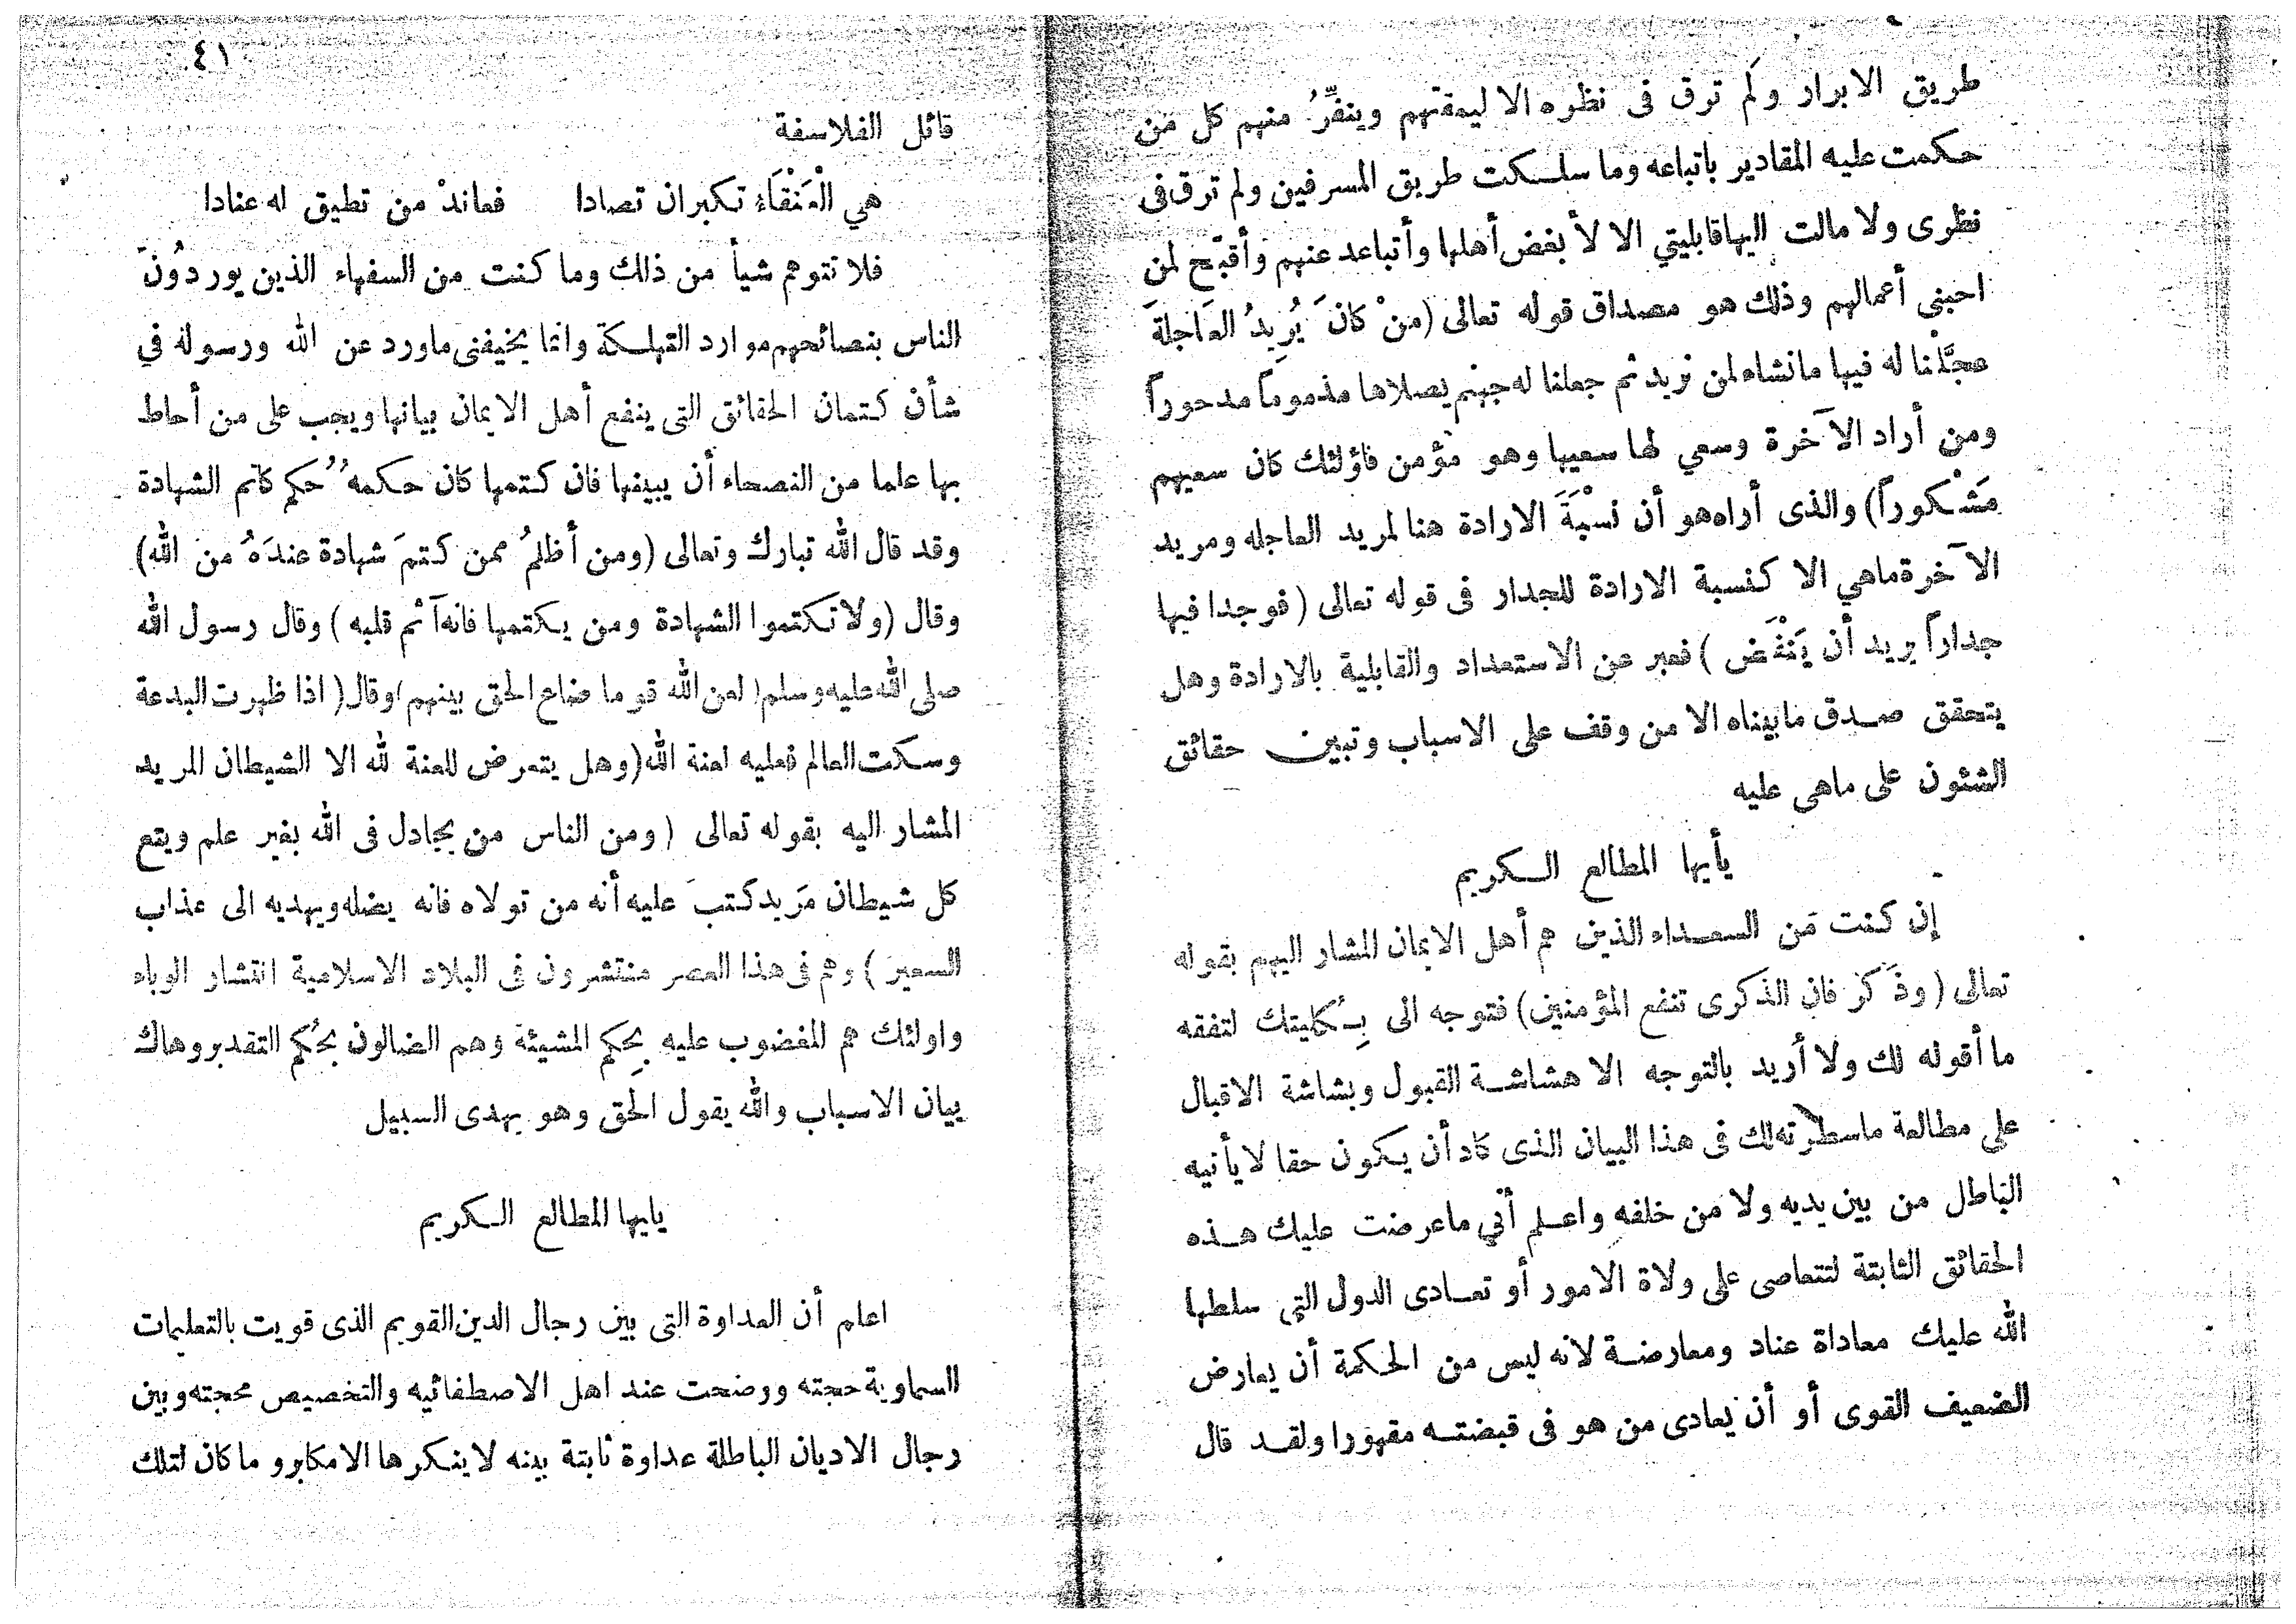 طريق الابرار ولَم ترق فى نظره الا ليمقتهم وينفِّرُ منهم كل من
حكمت عليه المقادير باتباعه وما سلكت طريق المسرفين ولم ترق فى
نظرى ولا مالت اليها قابليتي الا لأبغض أهلها وأتباعد عنهم وأقبّح لمن
احبني أعمالهم وذلك هو مصداق قوله تعالى (منْ كانَ يُرِيدُ العَاجلةَ
عجَّلْنا له فيها ما نشاء لمن نريد ثم جعلنا له جهنم يصلاها مذموماً مدحوراً
ومن أراد الآخرة وسعي لها سعيها وهو مؤمن فاؤلئك كان سعيهم
مَشْكوراً) والذى أراه هو أن نسْبَةَ الارادة هنا لمريد العاجله ومريد
الآخرة ماهي الا كنسبة الارادة للجدار فى قوله تعالى (فوجدا فيها
جداراً يريد أن يَنْقَض) فعبر عن الاستعداد والقابلية بالارادة وهل
يتحقق صدق مابيناه الا من وقف على الاسباب وتبين حقائق
الشئون على ماهى عليه
يأيها المطالع الكريم
إن كنت من السعداء الذين هم أهل الايمان المشار اليهم بقوله
تعالى (وذَكر فان الذكرى تنفع المؤمنين) فتوجه الى بِكُليتك لتفقه
ما أقوله لك ولا أريد بالتوجه الا هشاشة القبول وبشاشة الاقبال
على مطالعة ماسطرته لك فى هذا البيان الذى كاد أن يكون حقا لا يأتيه
الباطل من بين يديه ولا من خلفه واعلم أني ماعرضت عليك هذه
الحقائق الثابتة لتتعاصى على ولاة الامور أو تعادى الدول التي سلطها
الله عليك معاداة عناد ومعارضة لانه ليس من الحكمة أن يعارض
الضعيف القوى أو أن يعادى من هو فى قبضته مقهورا ولقد قال
٤١
قائل الفلاسفة
هي الْعَنْقَاءُ تكبر ان تصادا فعاندْ من تطيق له عنادا
فلا تتوهم شيأ من ذلك وما كنت من السفهاء الذين يوردُونَ
الناس بنصائحهم موارد التهلكة وانما يخيفنى ماورد عن الله ورسوله في
شأن كتمان الحقائق التى ينفع أهل الايمان بيانها ويجب على من أحاط
بها علما من النصحاء أن يبينها فان كتمها كان حكمهُ حُكم كاتم الشهادة
وقد قال الله تبارك وتعالى (ومن أظلمُ ممن كتمَ شهادة عندَهُ من الله)
وقال (ولا تكتموا الشهادة ومن يكتمها فانه آثم قلبه) وقال رسول الله
صلى الله عليه وسلم (لعن الله قوما ضاع الحق بينهم) وقال (اذا ظهرت البدعة
وسكت العالم فعليه لعنة الله) وهل يتعرض للعنة لله الا الشيطان المريد
المشار اليه بقوله تعالى (ومن الناس من يجادل فى الله بغير علم ويتبع
كل شيطان مَريد كتبَ عليه أنه من تولاه فانه يضله ويهديه الى عذاب
السعير) وهم فى هذا العصر منتشرون فى البلاد الاسلامية انتشار الوباء
واولئك هم المغضوب عليه بِحكم المشيئة وهم الضالون بحُكم التقدير وهاك
بيان الاسباب والله يقول الحق وهو يهدى السبيل
يايها المطالع الكريم
اعلم أن العداوة التى بين رجال الدين القويم الذى قويت بالتعليمات
السماوية حجته ووضحت عند اهل الاصطفائيه والتخصيص محجته وبين
رجال الاديان الباطلة عداوة ثابتة بينه لا ينكرها الا مكابر وما كان لتلك